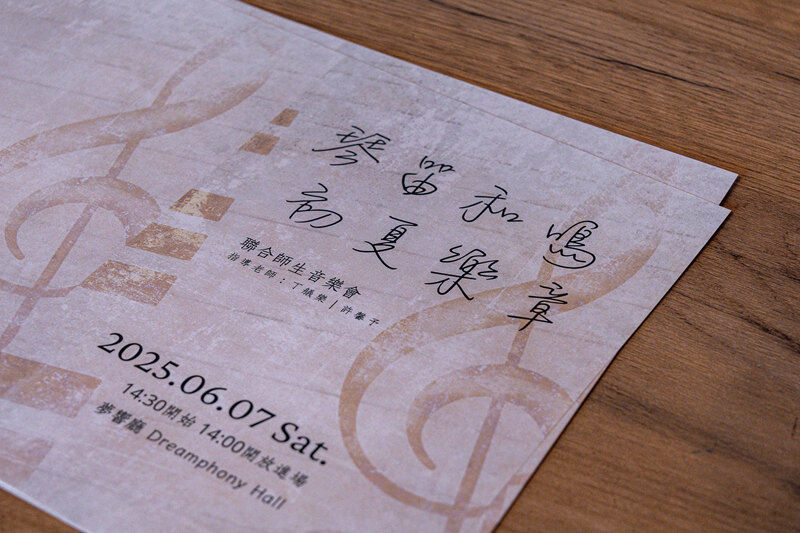 琴笛和鳴
初夏樂章
聯合師生音樂會
指導老師：丁艤樂｜許馨予
2025.06.07 Sat.
14:30開始 14:00開放進場
夢響廳 Dreamphony Hall